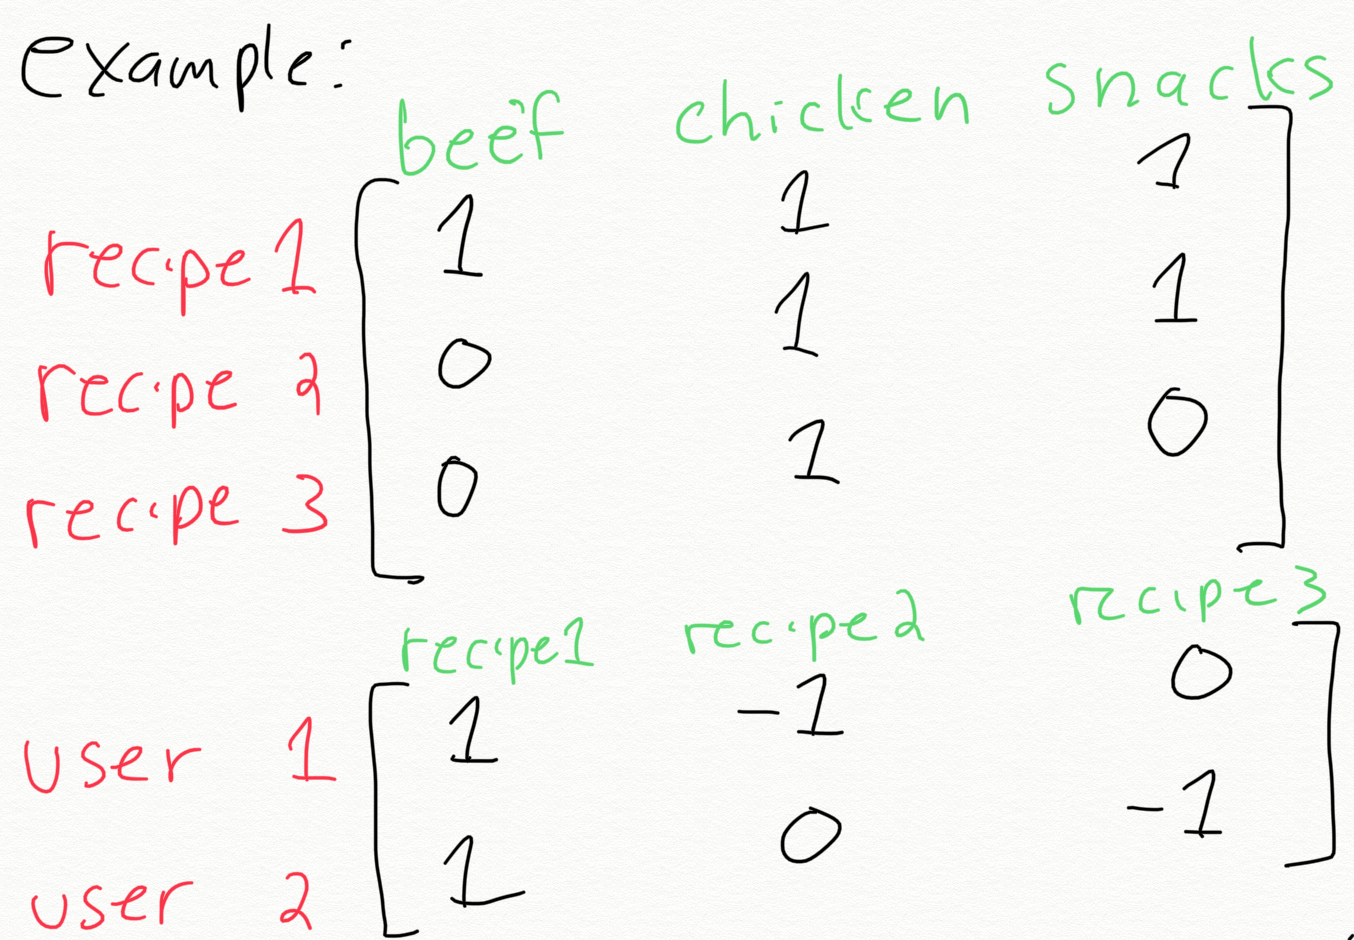 example:
beef chicken snacks
recipe 1 1 1 1
recipe 2 0 1 1
recipe 3 0 1 0
recipe1 recipe2 recipe3
user 1 1 -1 0
user 2 1 0 -1